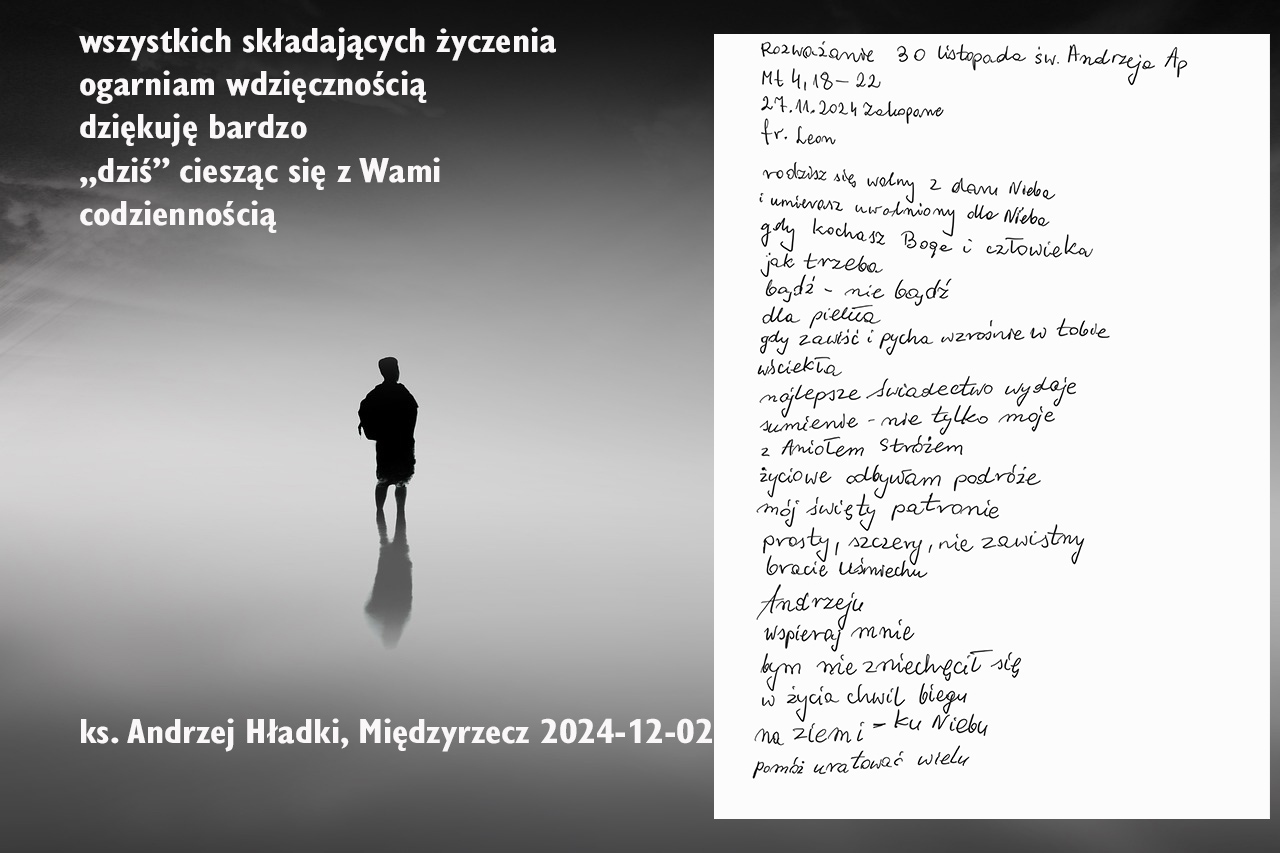 wszystkich składających życzenia
ogarniam wdzięcznością
dziękuję bardzo
„dziś” ciesząc się z Wami
codziennością
ks. Andrzej Hładki, Międzyrzecz 2024-12-02
Rozważanie 30 listopada św. Andrzeja Ap
Mt 4, 18 – 22
27.11.2024 Zakopane
fr. Leon
rodzisz się wolny z daru Nieba
i umierasz uwolniony dla Nieba
gdy kochasz Boga i człowieka
jak trzeba
bądź - nie bądź
dla piekła
gdy zawiść i pycha wzrośnie w tobie
wściekła
najlepsze świadectwo wydaje
sumienie - nie tylko moje
z Aniołem Stróżem
życiowe odbywam podróże
mój święty patronie
prosty, szczery, nie zawistny
bracie Uśmiechu
Andrzeju
wspieraj mnie
bym nie zniechęcił się
w życia chwil biegu
na ziemi - ku Niebu
pomóż uratować wielu